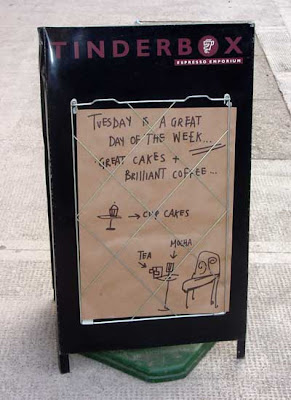 TINDERBOX
ESPRESSO EMPORIUM
TUESDAY IS A GREAT
DAY OF THE WEEK...
GREAT CAKES +
BRILLIANT COFFEE...
→ CUP CAKES
MOCHA
TEA